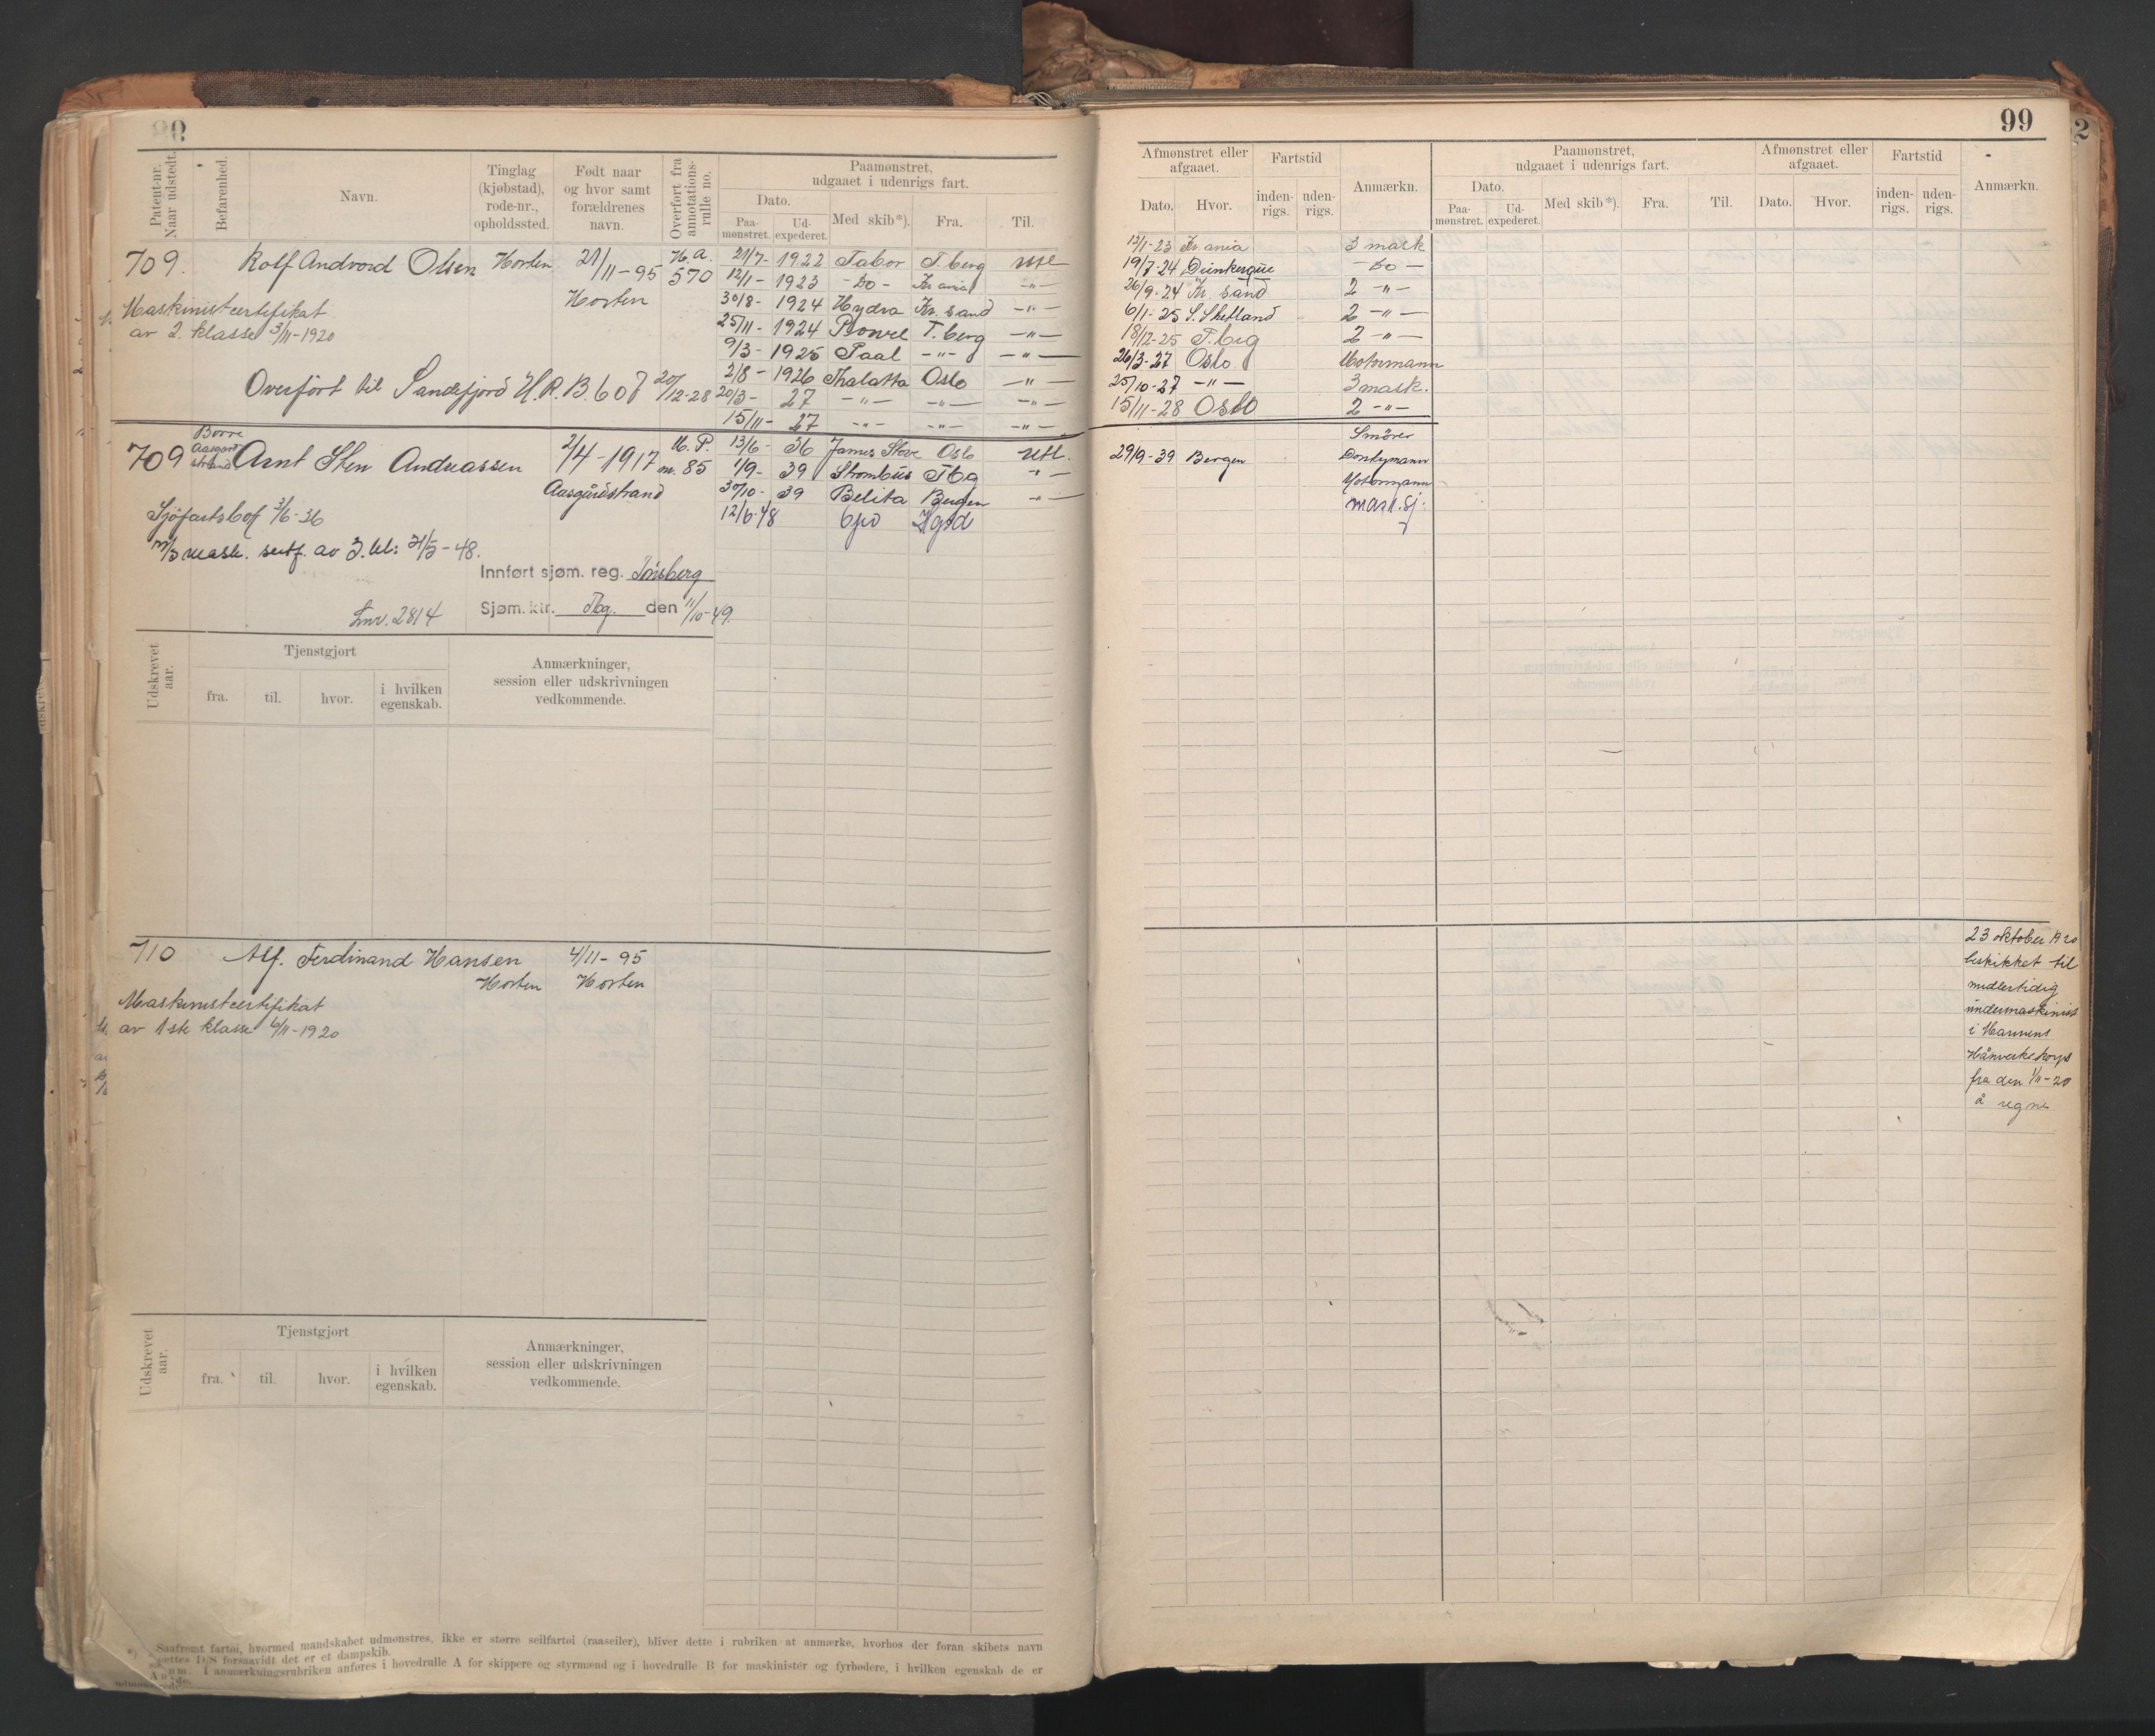 99
Patent-nr. Naar udstedt.
Befarenhed.
Navn.
Tinglag (kjøbstad), rode-nr., opholdssted.
Født naar og hvor samt forældrenes navn.
Overført fra annotations-rulle no.
Paamønstret, udgaaet i udenrigs fart.
Dato.
Paa-mønstret.
Ud-expederet.
Med skib*).
Fra.
Til.
709. Rolf Andvord Olsen Horten 21/11-95 Horten H.a. 570
Maskinistcertifikat
av 2. klasse 3/11-1920
Overført til Sandefjord H.R.B. 607 20/12-28
21/7- 1922 Tabor T.berg utl
12/1- 1923 -Do- Kr ania -"-
30/8- 1924 Hydra Kr. sand -"-
25/11- 1924 T.berg -"-
9/3- 1925 Paal -"- -"-
2/8- 1926 Thalatta Oslo -"-
20/3- 27 -"- -"- -"-
15/11- 27 -"- -"- -"-
709 Borre Aasgard strand Arnt Sten Andreassen 2/4-1917 Aasgårdstrand M.P. nr. 85
Sjøfartsbok 3/6-36
m/3 mask. sertf. av 3. kl: 21/5-48.
Innført sjøm. reg. Tønsberg
Lnr. 2814 Sjøm.ktr. Tbg. den 11/10-49.
13/6- 36 James Stove Oslo utl.
1/9- 39 Strombus Tbg -"-
30/10- 39 Belita Bergen -"-
12/6-48
Udskrevet aar.
Tjenstgjort
fra. til. hvor. i hvilken egenskab.
Anmærkninger, session eller udskrivningen vedkommende.
710 Alf. Ferdinand Hansen 4/11-95
Horten Horten
Maskinistcertifikat
av 1ste klasse 6/11-1920
Udskrevet aar.
Tjenstgjort
fra. til. hvor. i hvilken egenskab.
Anmærkninger, session eller udskrivningen vedkommende.
*) Saafremt fartøi, hvormed mandskabet udmønstres, ikke er større seilfartøi (raaseiler), bliver dette i rubriken at anmærke, hvorhos der foran skibets navn
sættes D/S forsaavidt det er et dampskib.
Anm. I anmærkningsrubriken anføres i hovedrulle A for skippere og styrmænd og i hovedrulle B for maskinister og fyrbødere, i hvilken egenskab de er
udmønstrede.
Afmønstret eller afgaaet.
Dato. Hvor.
Fartstid
inden-rigs. uden-rigs.
Anmærkn.
Paamønstret, udgaaet i udenrigs fart.
Dato.
Paa-mønstret. Ud-expederet.
Med skib*). Fra. Til.
Afmønstret eller afgaaet.
Dato. Hvor.
Fartstid
inden-rigs. uden-rigs.
Anmærkn.
12/1-23 Kr. ania 3 mask
19/7-24 Dunkerque -Do-
26/9-24 Kr. sand 2 -"-
6/1-25 S. Shetland 2 -"-
18/12-25 T.b.g 2 -"-
26/3-27 Oslo Motormann
25/10-27 -"- 3 mask.
15/11-28 Oslo 2 -"-
Smører
29/9-39 Bergen Donkymann
Motormann
mask.sj:
23 oktober 1920
beskikket til
midlertidig
undermaskinist
i Marinens
Håndverkskorps
fra den 1/11-20
å regne